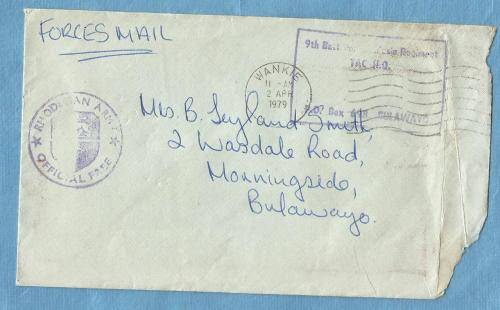 FORCES MAIL
9th Regiment
TAC H.Q.
P.O. Box BULAWAYO
WANKIE
11-AM
2 APR
1979
RHODESIAN ARMY
OFFICIAL FREE
Mrs. B. Leyland Smith,
2 Wasdale Road,
Morningside,
Bulawayo.